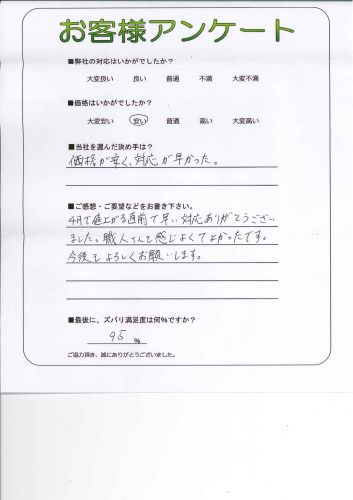 お客様アンケート
■弊社の対応はいかがでしたか?
大変良い 良い 普通 不満 大変不満
■価格はいかがでしたか?
大変安い 安い 普通 高い 大変高い
■当社を選んだ決め手は?
価格が安く、対応が早かった。
■ご感想・ご要望などをお書き下さい。
4月で値上がる直前で早い対応ありがとうござい
ました。職人さんも感じよくてよかったです。
今後もよろしくお願いします。
■最後に、ズバリ満足度は何%ですか?
95 %
ご協力頂き、誠にありがとうございました。